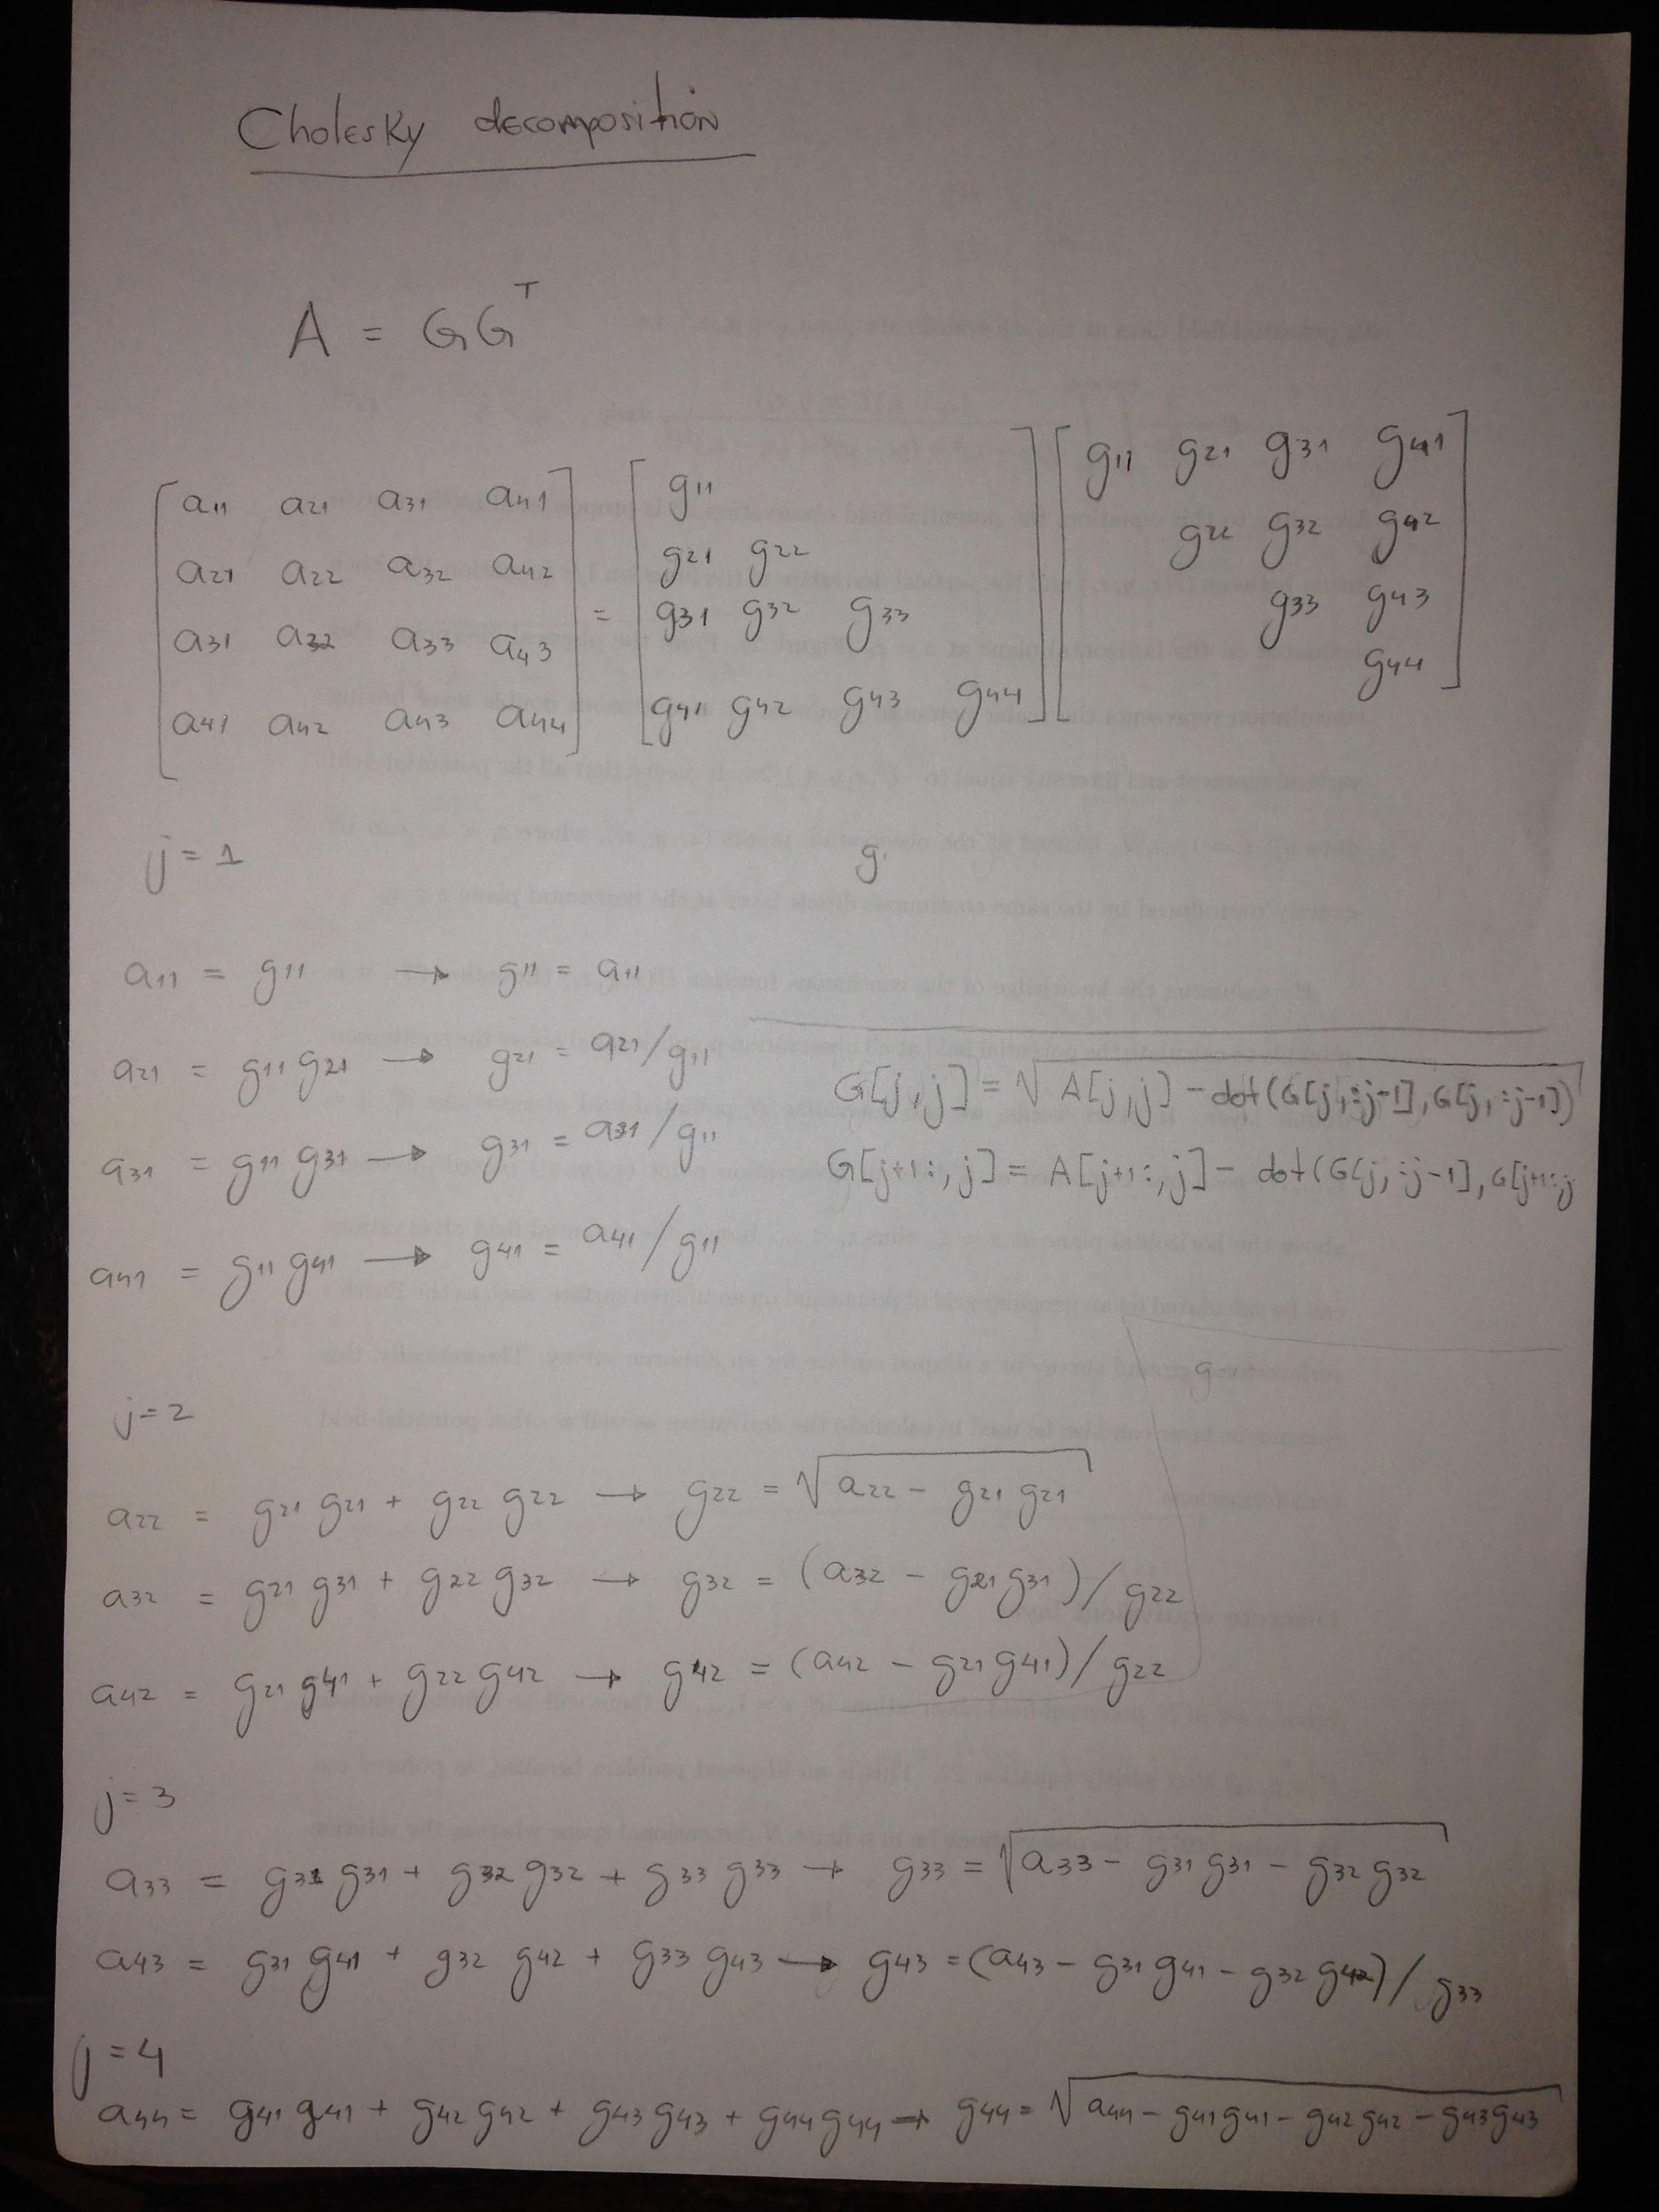 Cholesky decomposition
A = GG^T
[a11 a21 a31 a41] = [g11] [g11 g21 g31 g41]
[a21 a22 a32 a42] [g21 g22] [g22 g32 g42]
[a31 a32 a33 a43] [g31 g32 g33] [g33 g43]
[a41 a42 a43 a44] [g41 g42 g43 g44] [g44]
j = 1
g
a11 = g11 → g11 = a11
a21 = g11 g21 → g21 = a21/g11
a31 = g11 g31 → g31 = a31/g11
a41 = g11 g41 → g41 = a41/g11
G[j,j] = √A[j,j] - dot(G[j,:j-1], G[j,:j-1])
G[j+1:,j] = A[j+1:,j] - dot(G[j,:j-1], G[j+1:j
g
j=2
a22 = g21 g21 + g22 g22 → g22 = √a22 - g21 g21
a32 = g21 g31 + g22 g32 → g32 = (a32 - g21 g31)/g22
a42 = g21 g41 + g22 g42 → g42 = (a42 - g21 g41)/g22
j=3
a33 = g31 g31 + g32 g32 + g33 g33 → g33 = √a33 - g31 g31 - g32 g32
a43 = g31 g41 + g32 g42 + g33 g43 → g43 = (a43 - g31 g41 - g32 g42)/g33
j=4
a44 = g41 g41 + g42 g42 + g43 g43 + g44 g44 → g44 = √a44 - g41 g41 - g42 g42 - g43 g43